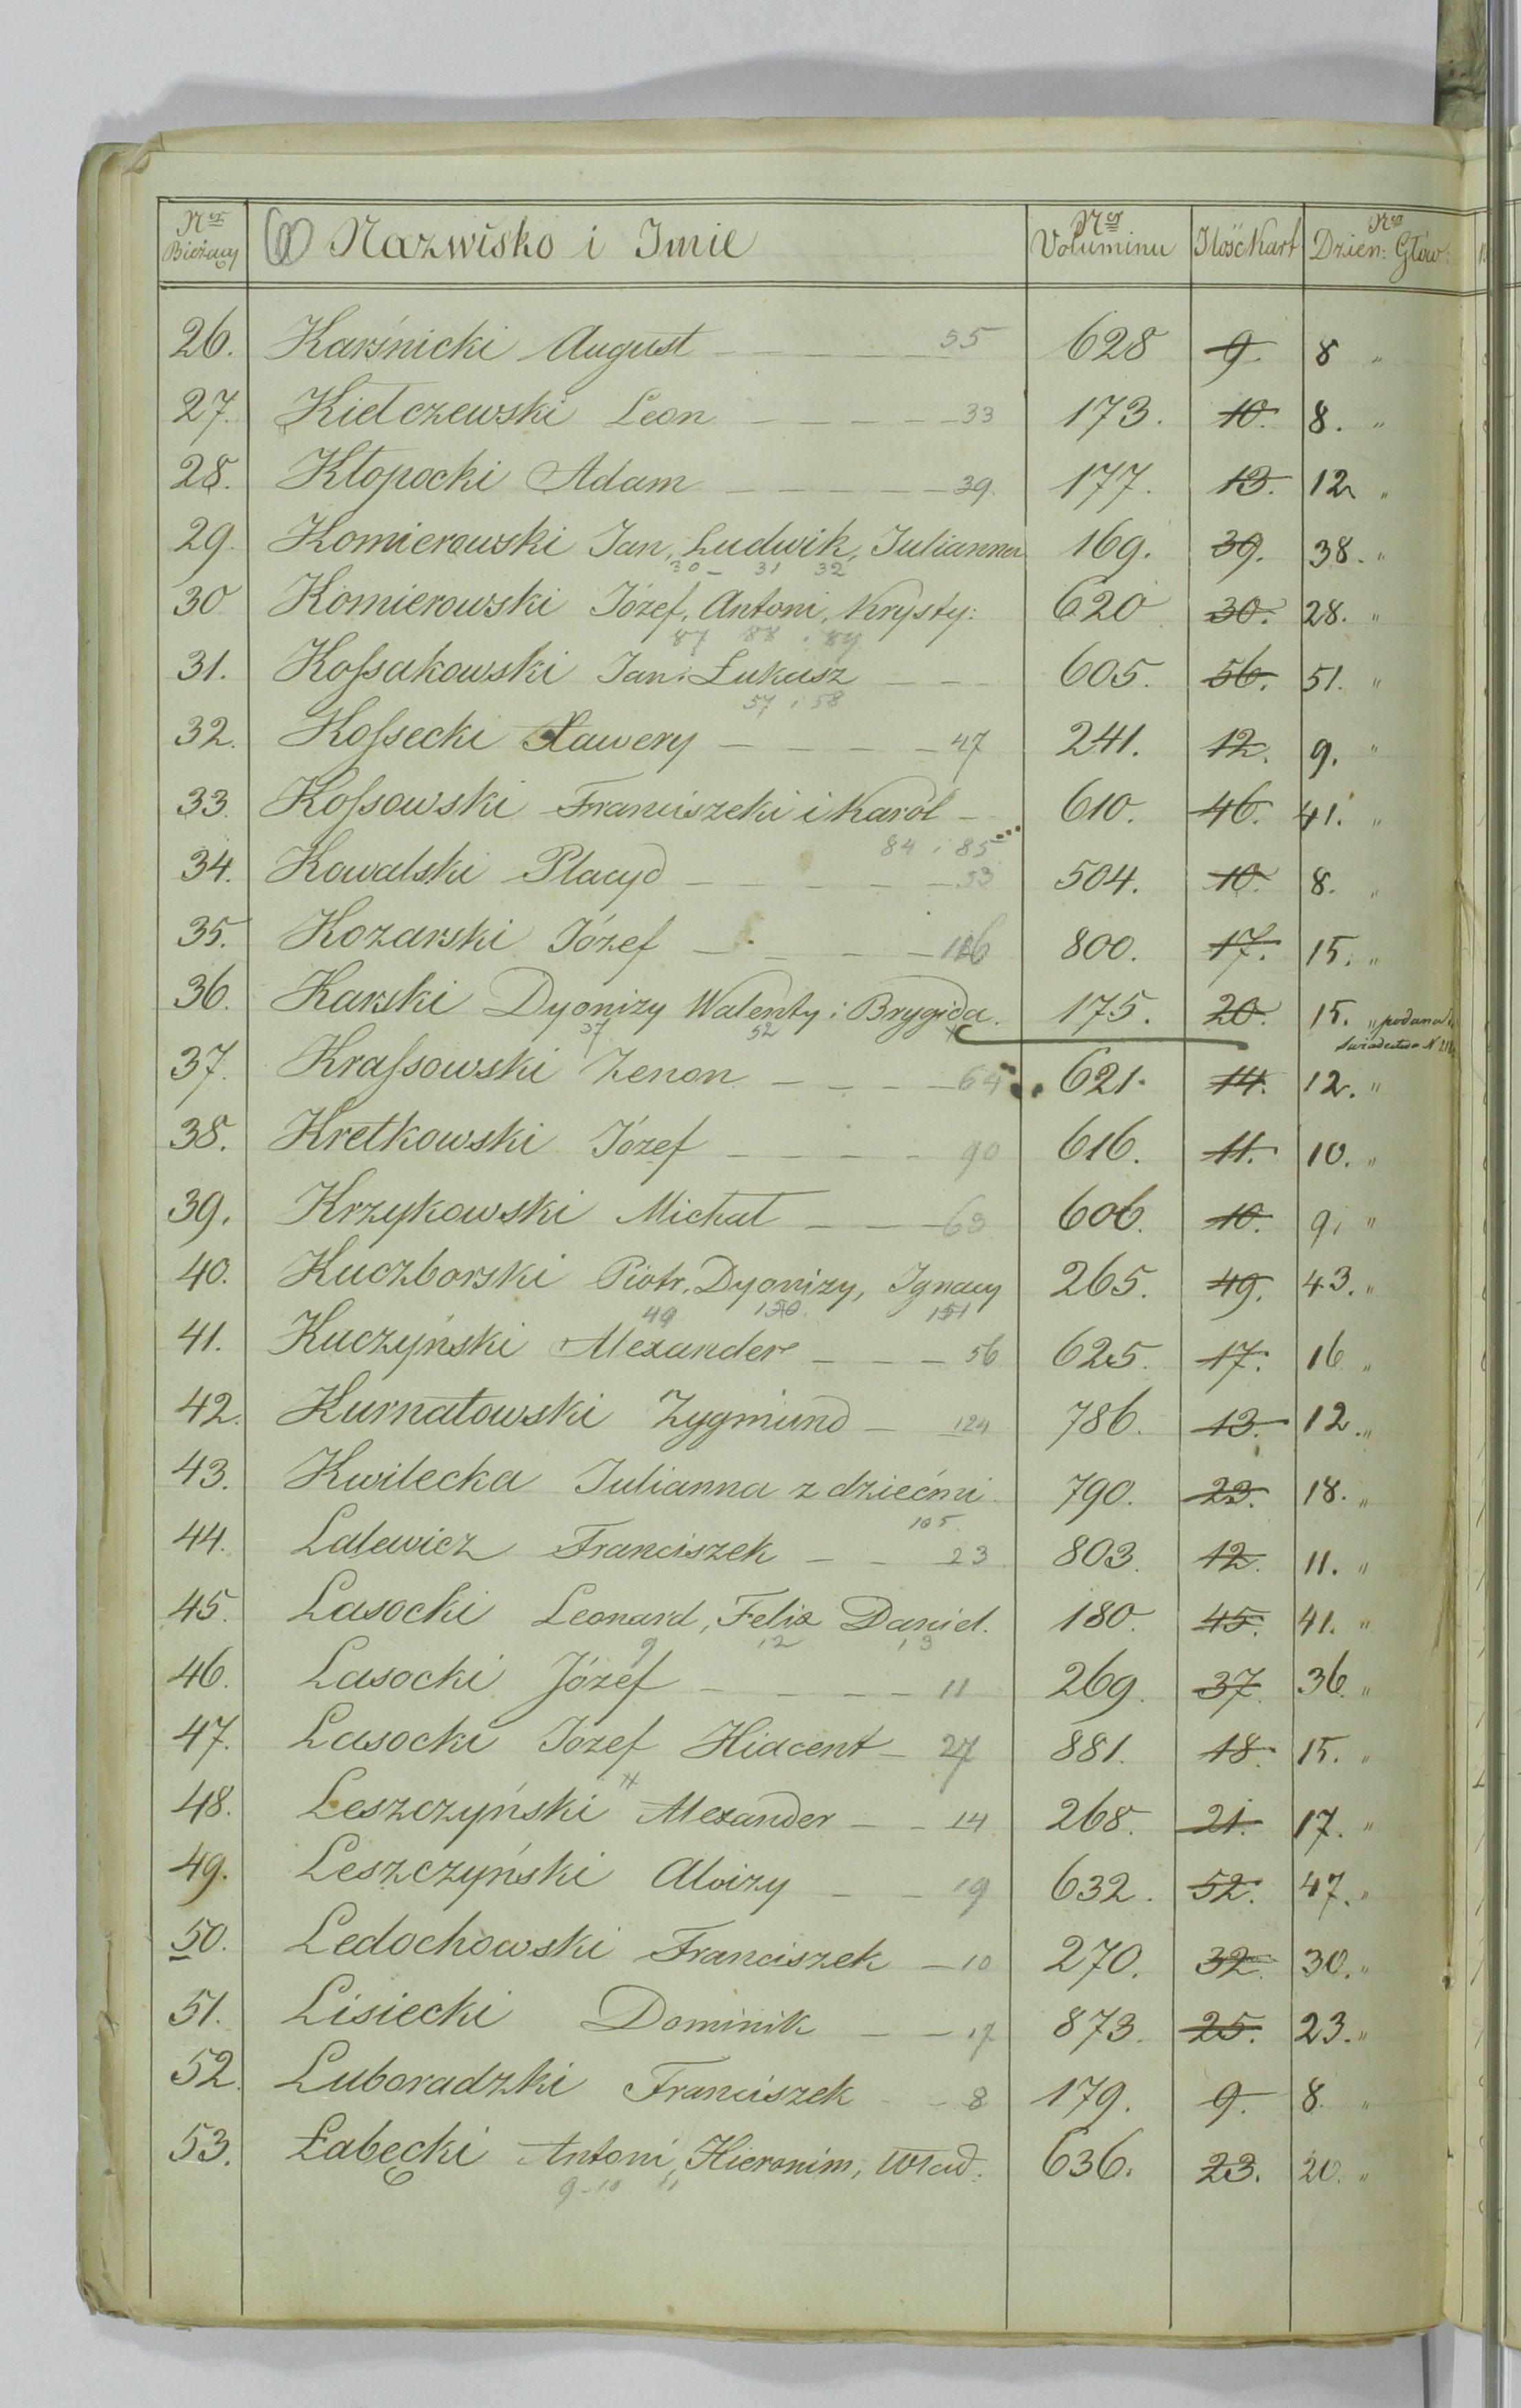 Nr Bieżący Nazwisko i Imie Nr Voluminu Ilość Kart Nr Dzien: Głów:
26. Karśnicki August 55 628 9. 8 "
27. Kiełczewski Leon 33 173. 10. 8. "
28. Kłopocki Adam 39. 177. 13. 12 "
29. Komierowski Jan, Ludwik, Julianna 169. 39. 38. "
30 - 31 32
30 Komierowski Józef, Antoni, Krysty: 620 30. 28. "
87 88 i 89
31. Kossakowski Jan i Łukasz 605. 56. 51. "
57 i 58
32. Kossecki Xawery 47 241. 12. 9. "
33. Kossowski Franciszek i Karól 610. 46. 41. "
84 i 85
34. Kowalski Placyd 53 504. 10. 8. "
35. Kozarski Józef 800. 17. 15. "
36. Karski Dyonizy Walenty i Brygida. 175. 20. 15. " podana
37 52 świadectwo N
37. Krassowski Zenon 64 621. 14. 12. "
38. Kretkowski Józef 90 616. 11. 10. "
39. Krzykowski Michał 63 606. 10. 9. "
40. Kuczborski Piotr, Dyonizy, Ignacy 265. 49. 43. "
49 150. 151
41. Kuczyński Alexander 56 625. 17. 16 "
42. Kurnatowski Zygmund 124 786. 13. 12. "
43. Kwilecka Julianna z dziećmi 790. 23. 18. "
105.
44. Lalewicz Franciszek 23 803. 12. 11. "
45. Lasocki Leonard, Felix Daniel. 180. 45. 41. "
9 12 13
46. Lasocki Józef 11 269. 37. 36. "
47. Lasocki Józef Hiacent 27 881. 18. 15. "
48. Leszczyński Alexander 14 268. 21. 17. "
49. Leszczyński Aloizy 19 632. 52. 47. "
50. Ledochowski Franciszek 10 270. 32. 30. "
51. Lisiecki Dominik 17 873. 25. 23. "
52. Luboradzki Franciszek 8 179. 9. 8. "
53. Łabęcki Antoni, Hieronim, Wład. 636. 23. 20. "
9-10 11